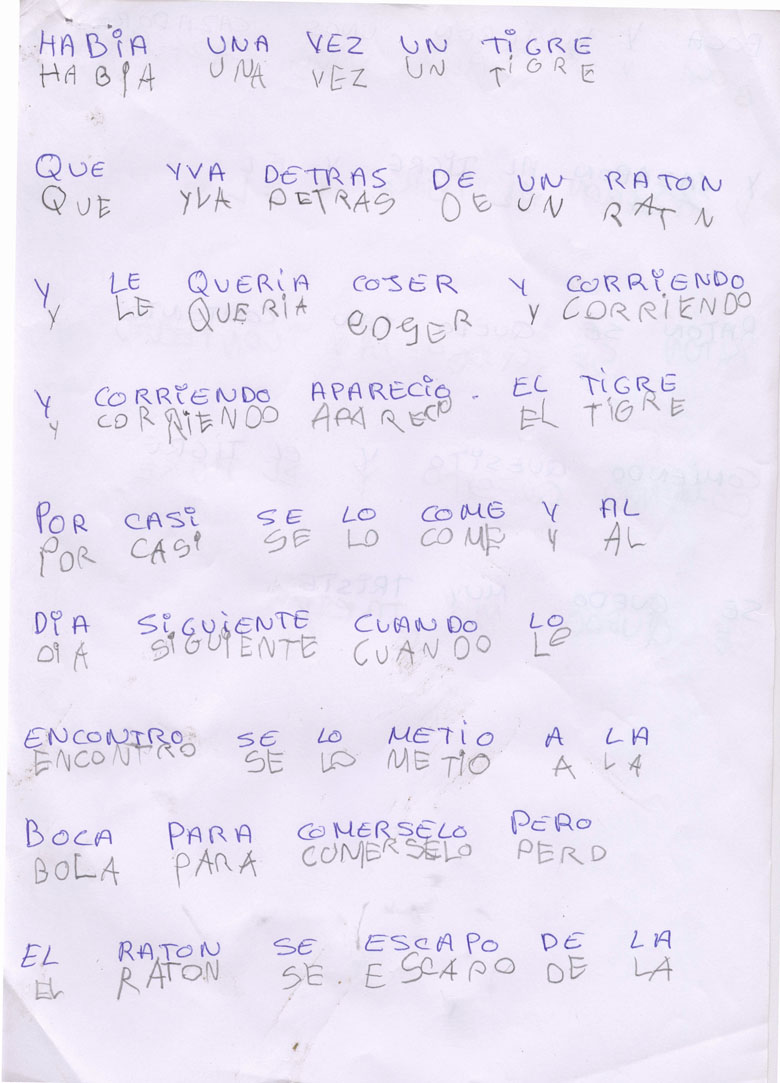 HABIA UNA VEZ UN TIGRE
HABIA UNA VEZ UN TIGRE
QUE YVA DETRAS DE UN RATON
QUE YVA DETRAS DE UN RAT N
Y LE QUERIA COJER Y CORRIENDO
Y LE QUERIA COGER Y CORRIENDO
Y CORRIENDO APARECIO. EL TIGRE
Y CORRIENDO APARECIO EL TIGRE
POR CASI SE LO COME Y AL
POR CASI SE LO COME Y AL
DIA SIGUIENTE CUANDO LO
DIA SIGUIENTE CUANDO LO
ENCONTRO SE LO METIO A LA
ENCONTRO SE LO METIO A LA
BOCA PARA COMERSELO PERO
BOLA PARA COMERSELO PERO
EL RATON SE ESCAPO DE LA
EL RATON SE ESCAPO DE LA